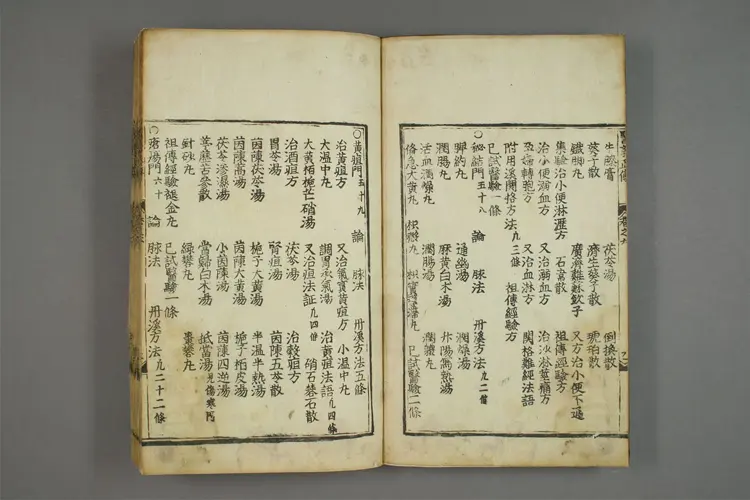 牛膝膏　茯苓湯　倒換散
葵子散　濟生葵子散　琥珀散
鐵脚丸　廣濟雞蘇飲子　又方治小便不通
集驗治小便淋瀝方　石韋散　祖傳經驗方
治小便溺血方　又治溺血方　治沙淋
孕婦轉胞方　又治血淋方　關格難經法語
附用溪關格方法凡三條　祖傳經驗方
已試醫驗一條
○秘結門五十八　論　脉法　丹溪方法凡二條
脾約丸　通幽湯　潤燥湯
潤腸丸　厥黄白木湯　升陽瀉熱湯
活血潤燥丸　潤腸湯　潤體丸
備急大黄丸　枳殼丸　已試醫驗二條
○黄疸門五十九　論　脉法　丹溪方法五條
治黄疸方　又治氣實黄疸方　小溫中丸
大溫中丸　調胃承氣湯　治黄疸法語凡四條
大黄栢梔芒硝湯　又治疸法証凡四條　硝石礬石散
治酒疸方　茯苓湯　治穀疸方
茵陳茯苓湯　腎疸湯　茵陳五苓散
茵陳蒿湯　梔子大黄湯　半溫半熱湯
茯苓滲濕湯　茵陳大黄湯　梔子栢皮湯
苦參散　小茵陳湯　茵陳四逆湯
針砂丸　當歸白木湯　抵當湯見傷寒門
祖傳經驗褪金丸　綠礬丸　棗礬丸
　已試醫驗一條
○瘡瘍門六十　論　脉法　丹溪方法凡二十二條